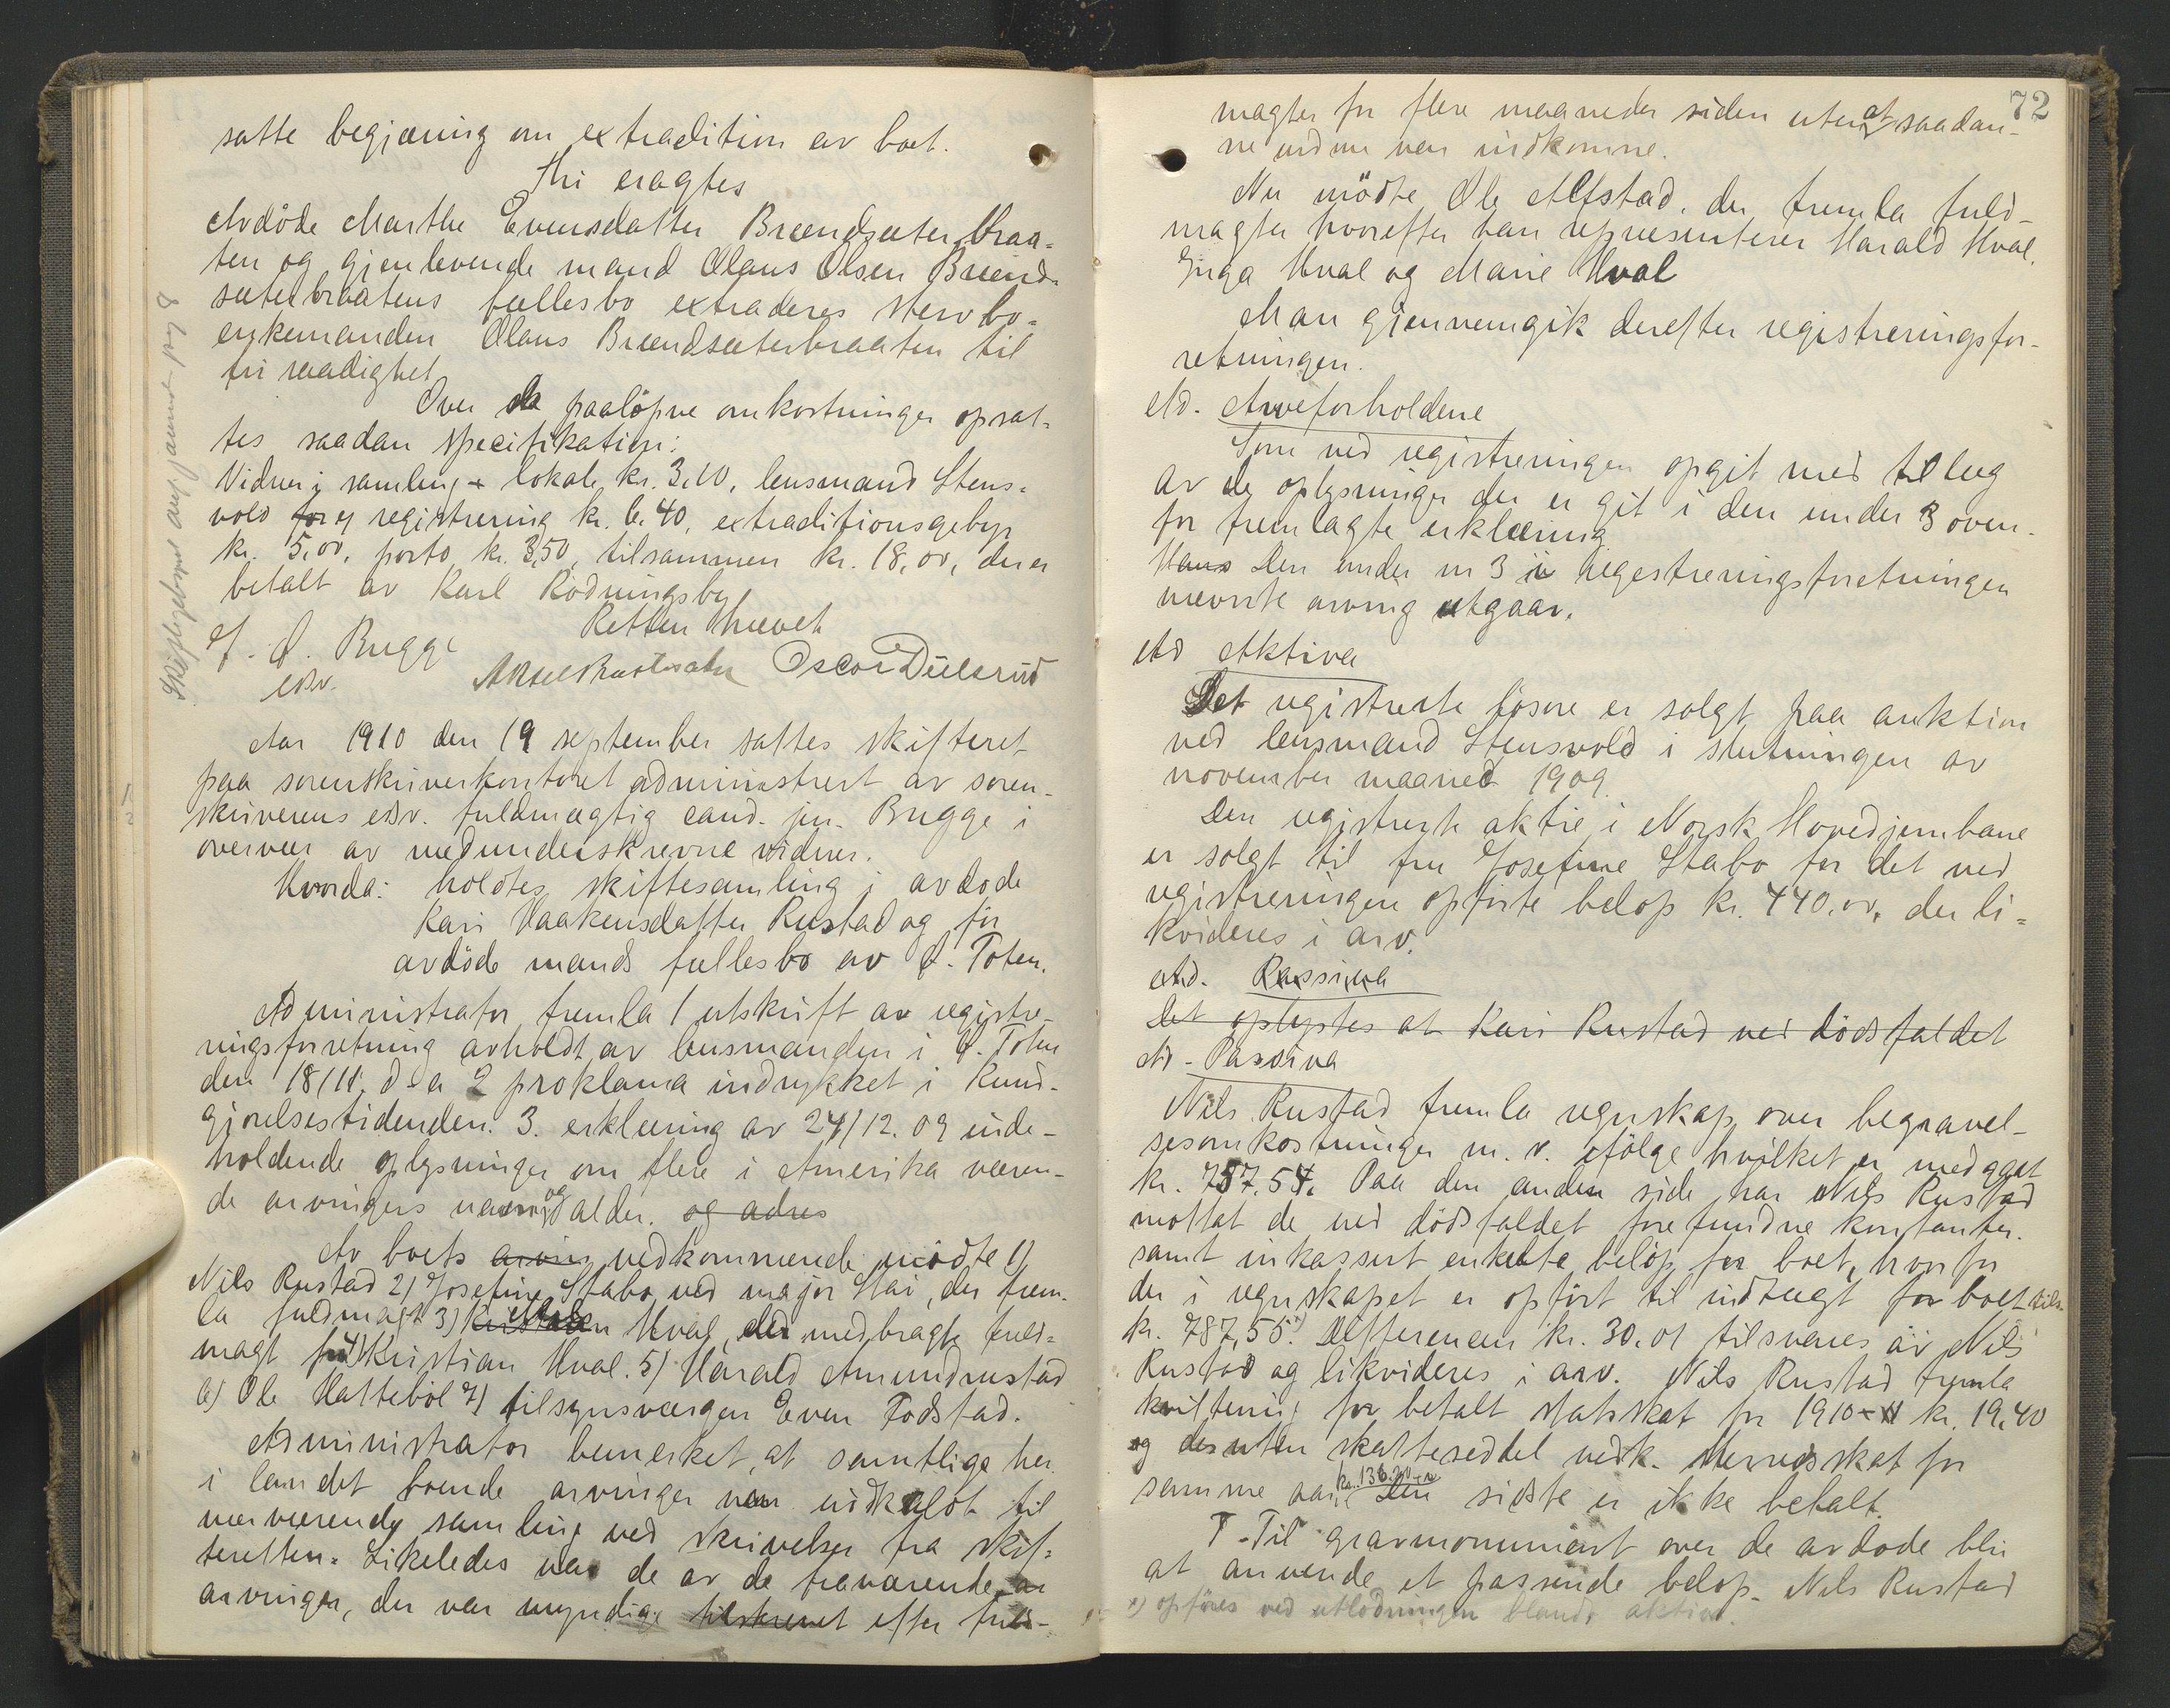 satte begjæring om extradition av boet.
Thi eragtes
Avdöde Marthe Evensdatter Brændsæterbraa-
ten og gjenlevende mand Olaus Olsen Brænd-
sæterbraatens fællesbo extraderes stervbo-
enkemanden Olaus Brændsæterbraaten til
fri raadighet
Over de paalöpne omkostninger opsat-
tes saadan specifikation:
Vidner i samling + lokale kr. 3,10, lensmand Stens-
vold for registrering kr. 6.40, extraditionsgebyr
kr. 5,00, porto kr. 3,50, tilsammen kr. 18,00, der er
betalt av Karl Rödningsby
Retten hævet
J. Bugge
esv.
Oscar Dielsrud
Aar 1910 den 19 september sattes skifteret
paa sorenskriverkontoret administrert av soren-
skriverens edsv. fuldmægtig cand. jur. Bugge i
overvær av medunderskrevne vidner.
Hvorda: holdtes skiftesamling i avdöde
Kari Haakensdatter Rustad og för
avdöde mands fællesbo av Ö. Toten.
Administrator fremla 1 utskrift av registre-
ringsforretning avholdt av lensmanden i Ö. Toten
den 18/11. d-a 2 proklama indrykket i Kund-
gjörelsestidenden. 3. erklæring av 24/12. 09 inde-
holdende oplysninger om flere i Amerika væren-
de arvingers navn og alder. og adres
Av boets arvin vedkommende mödte 1)
Nils Rustad 2) Josefine Stabo ved major Stai, der frem-
la fuldmagt 3) Hval, der medbragte fuld-
magt fra 4) Kristian Hval. 5) Harald Amundrustad
6) Ole Hatteböl 7) tilsynsværgen Even Fodstad.
Administrator bemerket, at samtlige her
i landet boende arvinger var indkaldt til
nærværende samling ved skrivelser fra skif-
teretten. Likeledes var de av de fraværende ar
arvinger, der var myndige tilskrevet efter fuld-
72
magter for flere maaneder siden uten at saadan-
ne endnu var indkomne.
Nu mödte Ole Alfstad, der fremla fuld-
magter hvorefter han representerer Harald Hval,
Inga Hval og Marie Hval
Man gjennemgik derefter registreringsfor-
retningen.
Ad. Arveforholdene
Som ved registreringen opgit med tillæg
av de oplysninger der er git i den under 3 oven-
for fremlagte erklæring
Hans Den under nr 3 i registreringsforetningen
nævnte arving utgaar.
Ad Aktiva
Det registrerte lösöre er solgt paa auktion
ved lensmand Stensvold i slutningen av
november maaned 1909
Den registrerte aktie i Norsk Hovedjernbane
er solgt til fru Josefine Stabo for det ved
registreringen opförte belöp kr. 440.00, der li-
kvideres i arv.
Ad. Passiva
Det oplystes at Kari Rustad ved dödsfaldet
Ad - Passiva
Nils Rustad fremla regnskap over begravel-
sesomkostninger m. v. ifölge hvilket er medgaat
kr. 757.54. Paa den anden side har Nils Rustad
mottat de ved dödsfaldet forefundne kontanter.
samt inkassert enkelte belöp for boet, hvorfor
der i regnskapet er opfört til indtægt for boet tils.
kr. 787,55. x) Differencen kr. 30.01 tilsvares av Nils
Rustad og likvideres i arv. Nils Rustad fremla
kvittering for betalt statsskat for 1910-11 kr. 19,40
og desuten skatteseddel vedk. Herredsskat for
samme aar, kr. 136.20 Den sidste er ikke betalt.
T-Til gravmonument over de avdöde blir
at anvende et passende belöp. Nils Rustad
x) opföres ved utlodningen blandt aktiva.